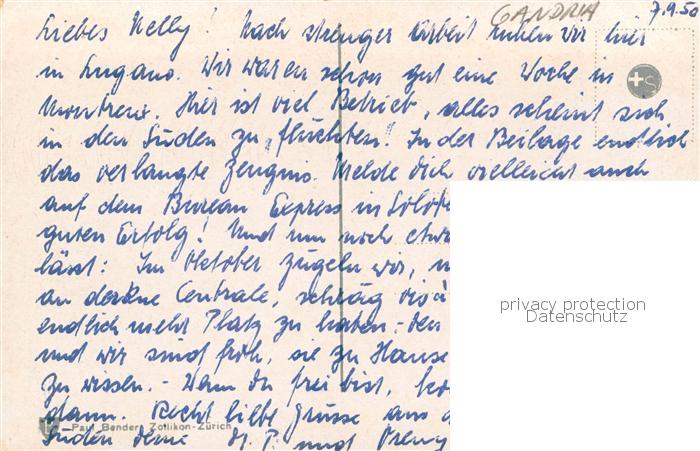 GANDRIA 7.9.50
Liebes Nelly! Nach strenger Arbeit ruhen wir hier
in Lugano. Wir waren schon gut eine Woche in
Montreux. Hier ist viel Betrieb, alles scheint sich
in den Süden zu „flüchten". In der Beilage endlich
das verlangte Zeugnis. Melde Dich vielleicht auch
auf dem Bureau Express in Solot
guten Erfolg! Und nun noch etwa
lässt: Im Oktober zügeln wir,
an Centrale, schräg vis à
endlich mehr Platz zu haben
und wir sind froh, sie zu Hause
zu wissen. - Wenn du frei bist,
dann. Recht liebe Grüsse aus d
Süden deine und Vreny
+S
Paul Bender, Zollikon-Zürich
privacy protection
Datenschutz